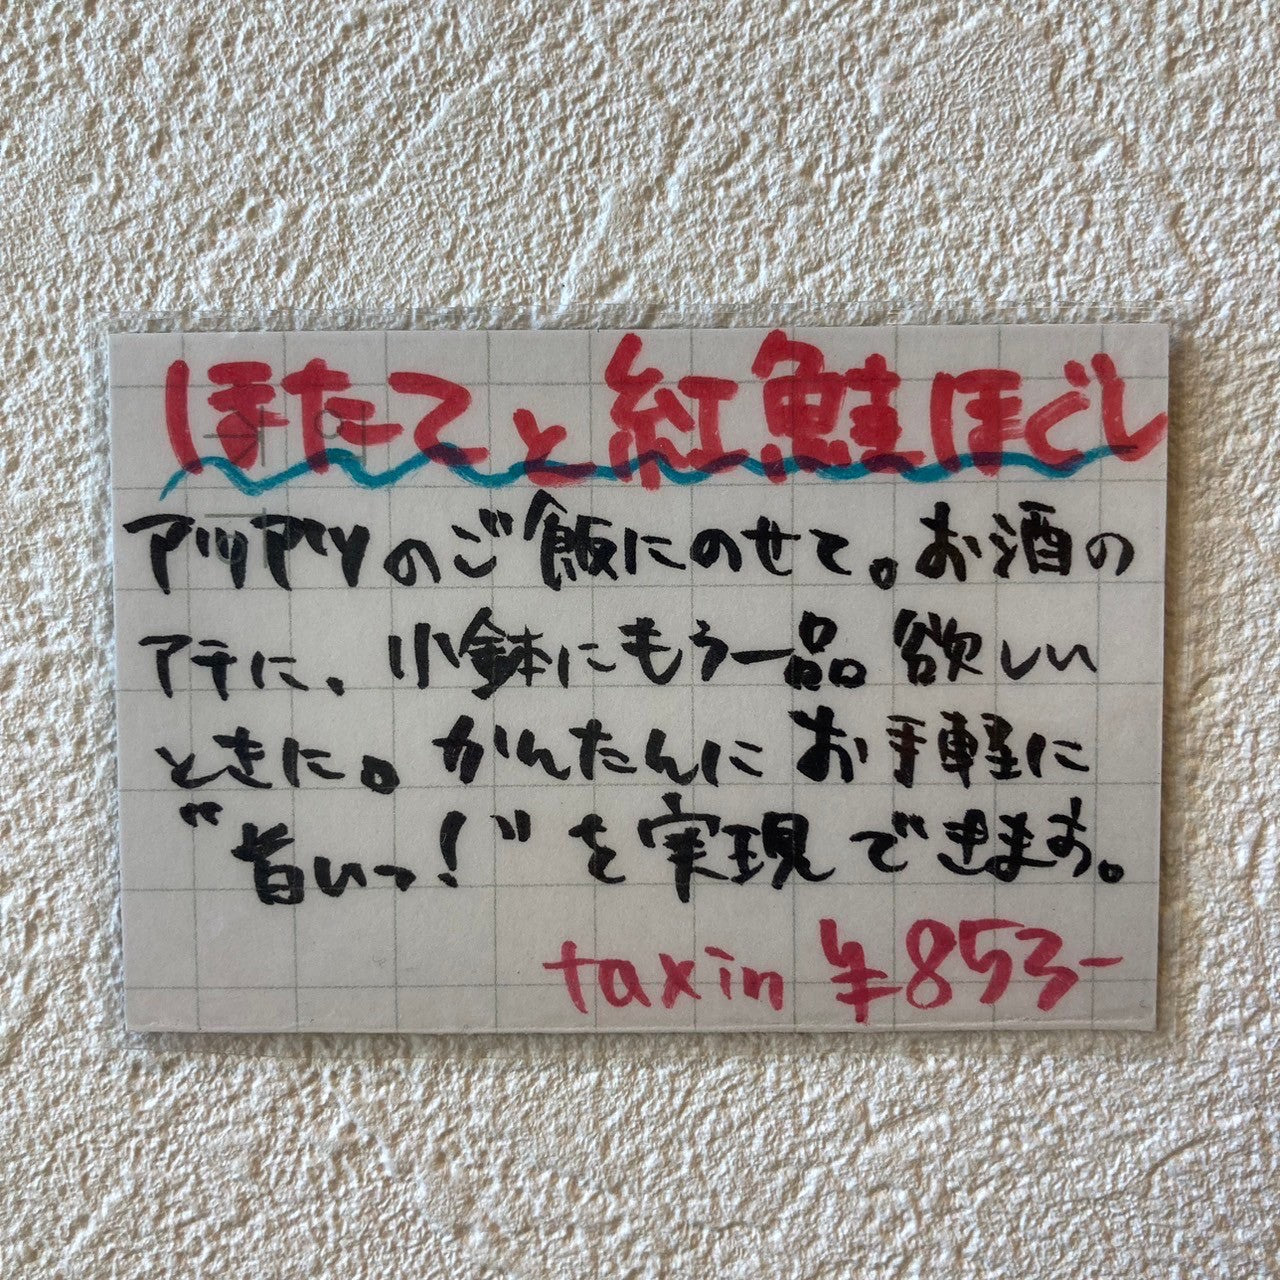 ほたてと紅鮭ほぐし
アツアツのご飯にのせて。お酒の
アテに、小鉢にもう一品欲しい
ときに。かんたんにお手軽に
"旨いっ!"を実現できます。
taxin ¥853-